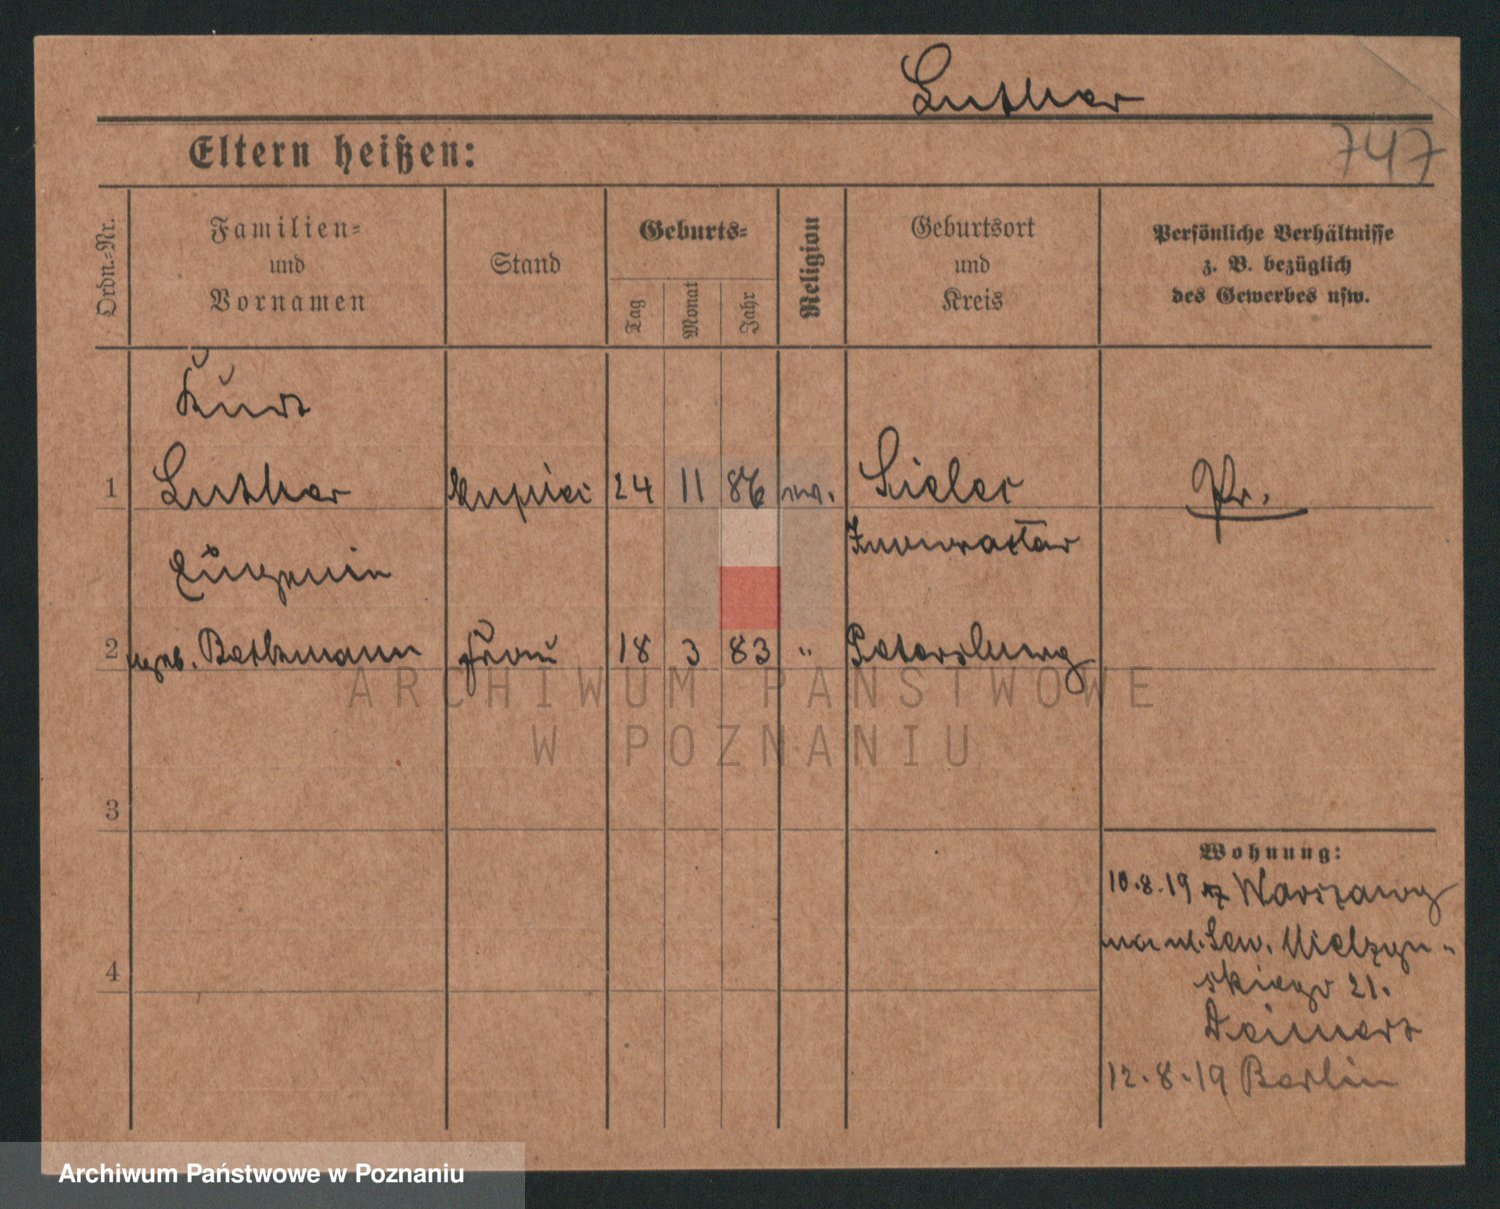 Luther
747
Eltern heißen:
Ordn.-Nr.
Familien-
und
Vornamen
Stand
Geburts-
Tag
Monat
Jahr
Religion
Geburtsort
und
Kreis
Persönliche Verhältnisse
z. B. bezüglich
des Gewerbes usw.
Kurt
1 Luther kupiec 24 11 86 Pr.
Eugenie
2 geb. Bethmann Frau 18 3 83 " Petersburg
3
4
Wohnung:
10.8.19 z Warszawy
na ul. Sew. Mielżyń-
skiego 21.
12.8.19 Berlin
ARCHIWUM PAŃSTWOWE
W POZNANIU
Archiwum Państwowe w Poznaniu